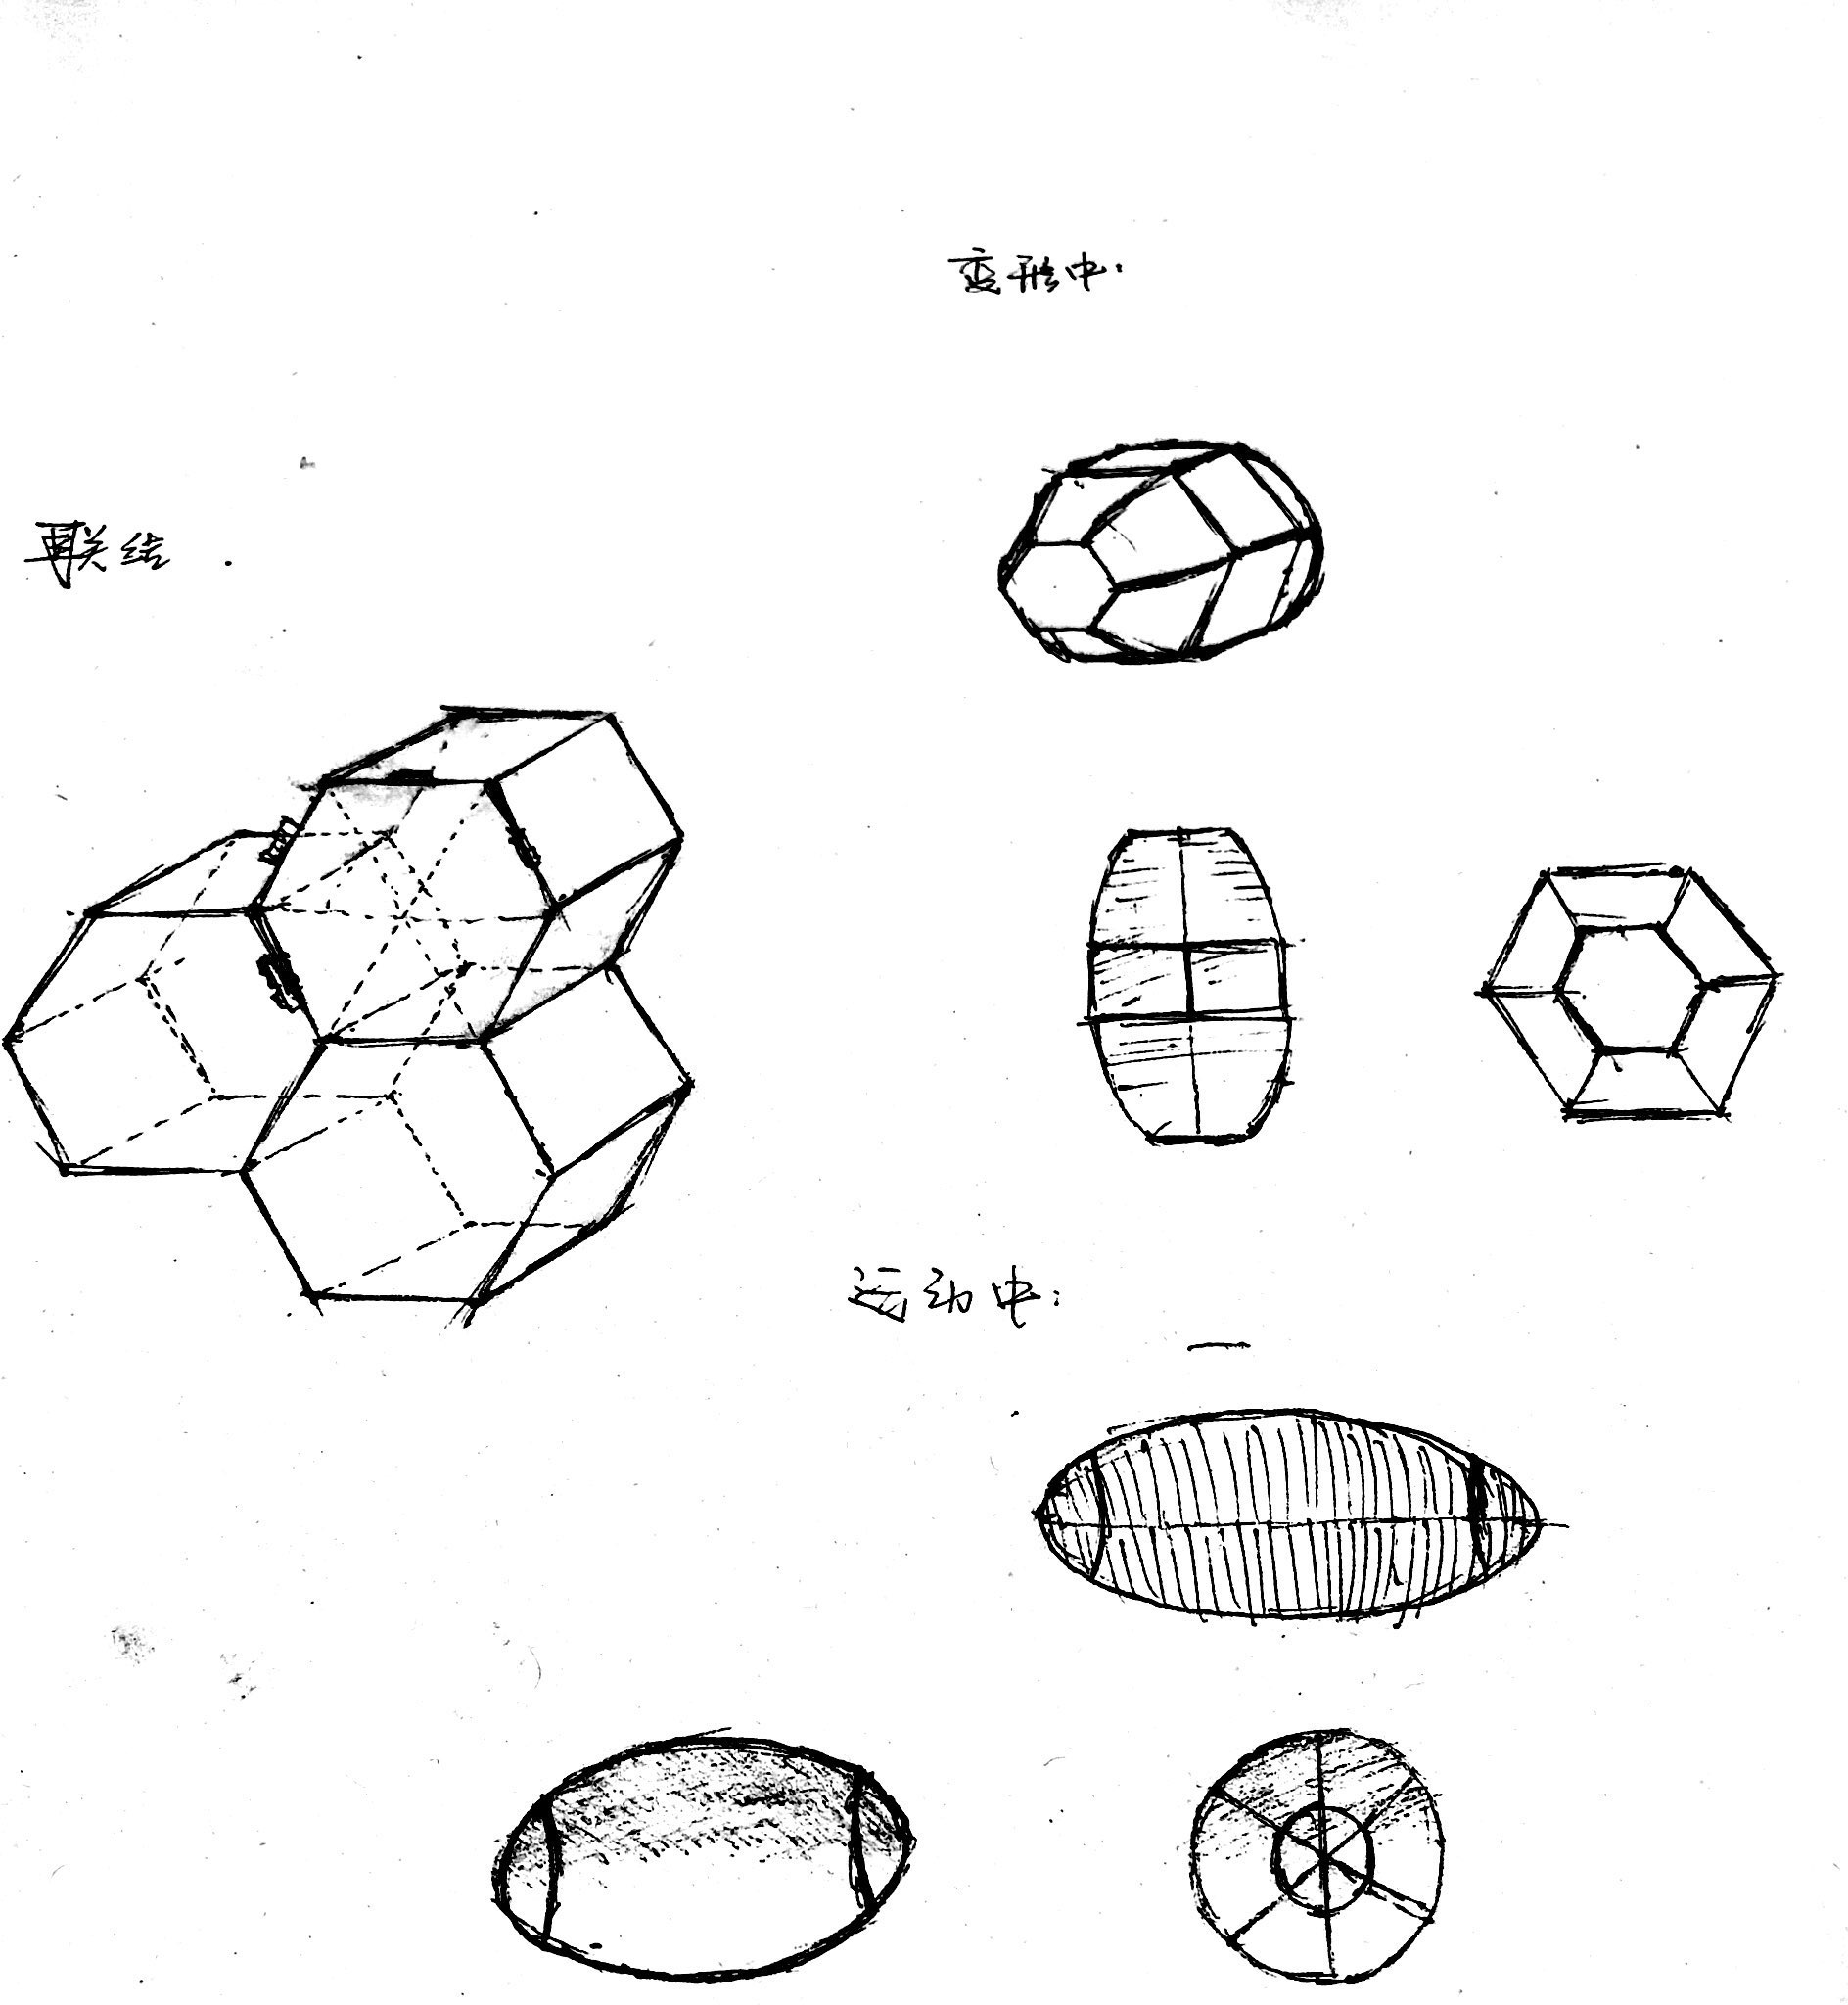 变形中:
再联结.
运动中: